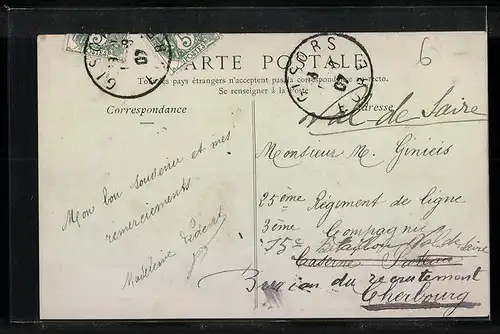 6
GISORS
EURE
07
5
CARTE POSTALE
GISORS
EURE
07
Tous les pays étrangers n'acceptent pas la correspondance au recto.
Se renseigner à la Poste
Correspondance
Adresse
Val de Saire
Mon bon souvenir et mes
remerciements
Madeleine
Monsieur M. Ginieis
25ème Régiment de ligne
3ème Compagnie
Caserne
Bureau du recrutement
Cherbourg